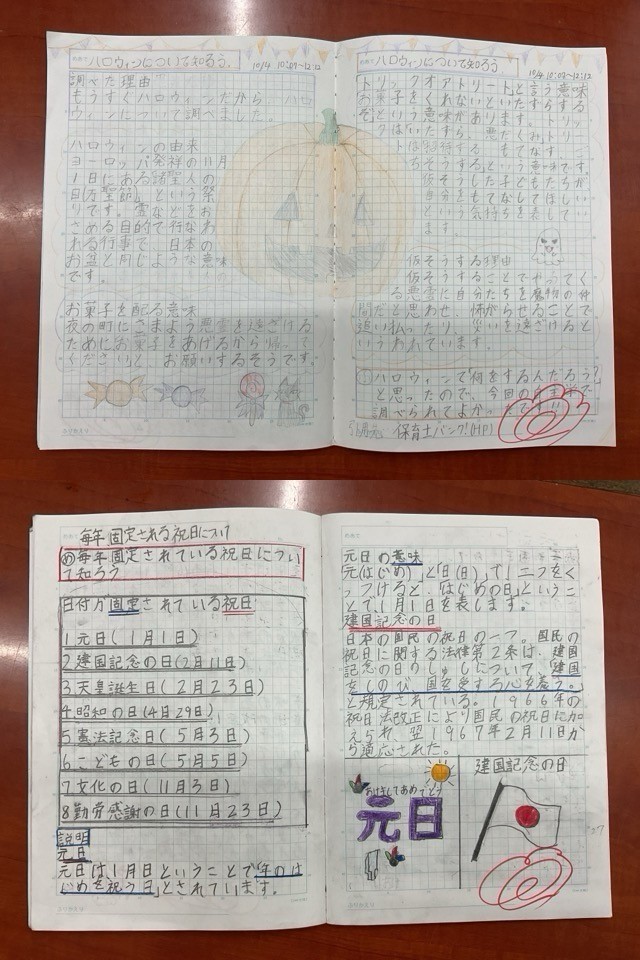 ハロウィンについて知ろう。
10/4 10:09~12:12
調べた理由
もうすぐハロウィンだから ハロ
ウィンについて調べました。
ハロウィンの由来
ヨーロッパ発祥の11月
1日にある諸聖人の
日(万聖節)という祭
りです。霊などをお
さめる目的で行なわ
れる行事で、日本の
お盆と同じような意味
です。
お菓子を配る意味
夜の町にさまよう悪霊を遠ざける
ためにお菓子をあげるから帰って
くださいと お願いするそうです。
ハロウィンについて知ろう
10/4 10:09~12:12
トリックオアトリートと言う意味
お菓子をくれないといたずらする
ぞという意味があります。トリッ
クはいたずら、悪だくみ、トリー
トは接待する、もてなす、ご
ちそうするという意味です。
仮そうした子どもたちが
自分をもてなしてほしい
という気持ちを表してい
ます
仮そうする理由
仮そうすることでやってく
る悪霊に自分たちを魔物の仲
間だと思わせ、怖がらせることで
追い払ったり、災いを遠ざけると
いうわれています。
ハロウィンで「何をするんだろう?
と思ったので、今回の
調べられてよか
引用元 保育士バンク!(HP)
毎年固定される祝日について
め毎年固定されている祝日につい
て知ろう
日付が固定されている祝日
1元日(1月1日)
2建国記念の日(2月11日)
3天皇誕生日(2月23日)
4昭和の日(4月29日)
5憲法記念日(5月3日)
6こどもの日(5月5日)
7文化の日(11月3日)
8勤労感謝の日(11月23日)
説明
元日
元日は1月日ということで「年のは
じめを祝う日」とされています。
元日の意味
元(はじめ)」と「日(日)」で1二つをく
っつけると、はじめの日」というこ
とで、1月1日を表します。
建国記念の日
日本の国民の祝日の一つ。国民の
祝日に関する法律第2条は、建国
記念の日のしゅしについて、「建国
をしのび、国を愛する心を養う。」
と規定されている。1966年の
祝日法改正により国民の祝日に加
えられ、翌1967年2月11日か
ら適応された。
あけましておめでとう
元日
建国記念の日